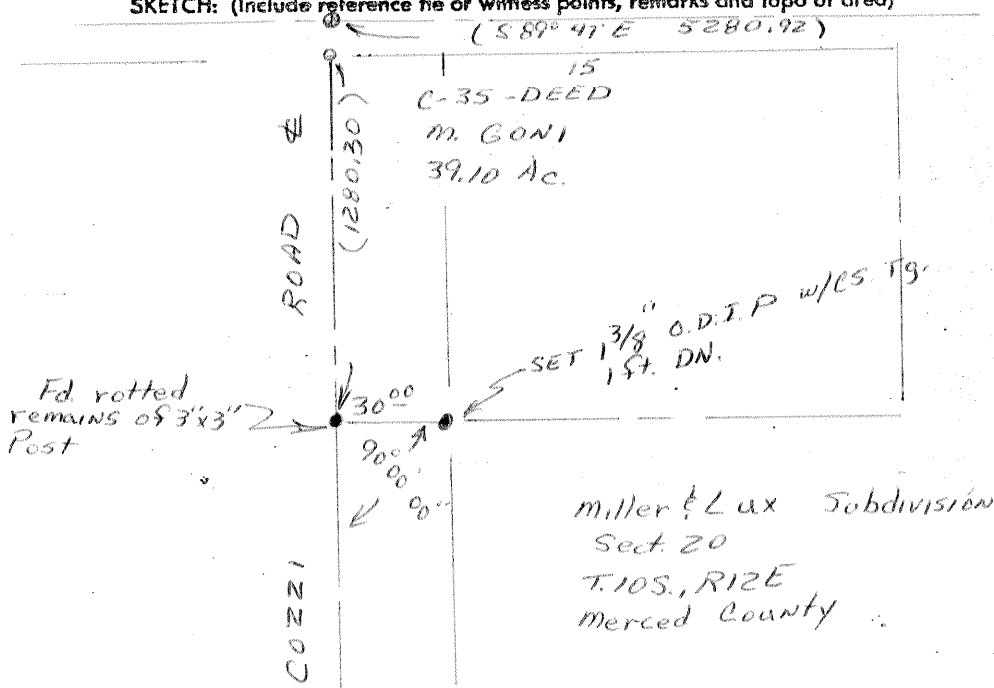 SKETCH: (Include reference tie or witness points, remarks and topo of area)
(S 89° 47' E 5280.92)
15
C-35-DEED
M. GONI
39.10 Ac.
(1280.30)
COZZI ROAD ℄
SET 1 3/8" O.D.I.P w/CS Tg.
1 ft. DN.
Fd. rotted
remains of 3"x3"
Post
30 00
90° 00' 00"
Miller & Lux Subdivision
Sect. 20
T.10S., R12E
Merced County